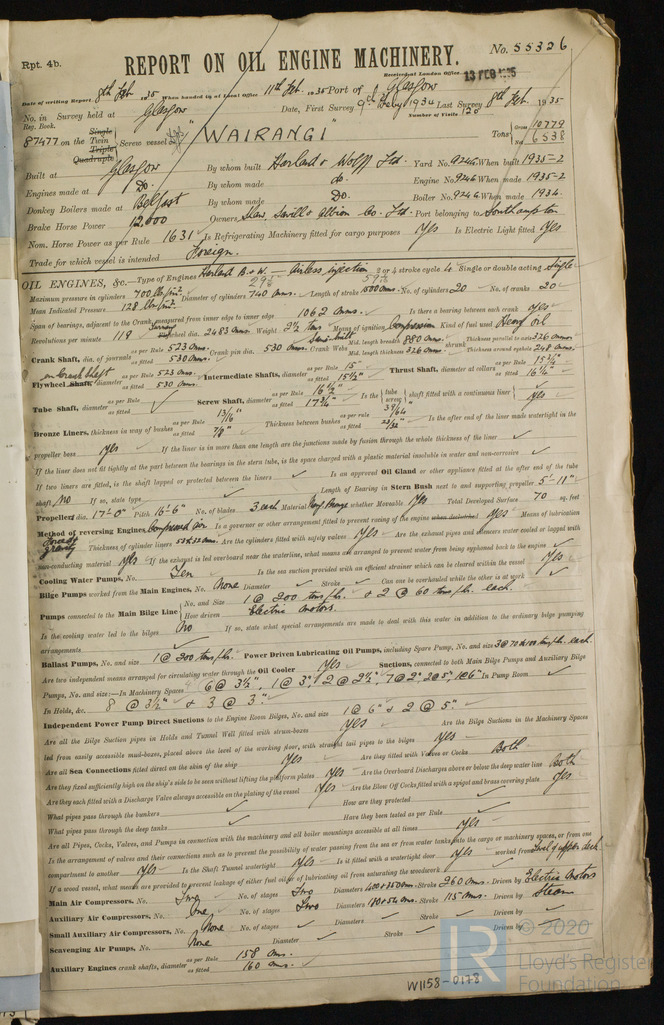 Rpt. 4b.
No. 55326
REPORT ON OIL ENGINE MACHINERY.
Received at London Office 13 FEB 1935
Date of writing Report 8th Feb. 1935 When handed in at Local Office 11th Feb. 1935 Port of Glasgow
No. in Survey held at Glasgow Date, First Survey 9th 1934 Last Survey 8th Feb. 1935
Reg. Book. Number of Visits 120
87477 on the Single Twin Triple Quadruple Screw vessel "WAIRANGI" Tons Gross 10779 Net 6538
Built at Glasgow By whom built Harland & Wolff Ltd. Yard No. 924G. When built 1935-2
Engines made at Do. By whom made do. Engine No. 924G When made 1935-2
Donkey Boilers made at Belfast By whom made Do. Boiler No. 924G. When made 1934
Brake Horse Power 12,000 Owners Shaw, Savill & Albion Co. Ltd. Port belonging to Southampton
Nom. Horse Power as per Rule 1631 Is Refrigerating Machinery fitted for cargo purposes Yes Is Electric Light fitted Yes
Trade for which vessel is intended Foreign.
OIL ENGINES, &c.—Type of Engines Harland B. & W. — Airless injection 2 or 4 stroke cycle 4 Single or double acting Single
Maximum pressure in cylinders 700 lbs/in². Diameter of cylinders 740 mms. Length of stroke 1500 mms. No. of cylinders 20 No. of cranks 20
Mean Indicated Pressure 128 lbs/in².
Span of bearings, adjacent to the Crank, measured from inner edge to inner edge 1062 mms. Is there a bearing between each crank Yes
Revolutions per minute 119 Flywheel dia. 2483 mms. Weight 2½ tons Means of ignition Compression Kind of fuel used Heavy oil
Crank Shaft, dia. of journals as per Rule 523 mms. as fitted 530 mms. Crank pin dia. 530 mms. Crank Webs Mid. length breadth 880 mms. Mid. length thickness 326 mms. shrunk Thickness parallel to axis 326 mms. Thickness around eyehole 248 mms.
Flywheel Shaft, diameter as per Rule 523 mms. as fitted 530 mms. Intermediate Shafts, diameter as per Rule 15" as fitted 15½" Thrust Shaft, diameter at collars as per Rule 15¾" as fitted 16¼"
Tube Shaft, diameter as per Rule as fitted Screw Shaft, diameter as per Rule 16½" as fitted 17¾" Is the tube screw shaft fitted with a continuous liner Yes
Bronze Liners, thickness in way of bushes as per Rule 13/16" as fitted 7/8" Thickness between bushes as per rule 39/64" as fitted 23/32" Is the after end of the liner made watertight in the
propeller boss Yes If the liner is in more than one length are the junctions made by fusion through the whole thickness of the liner
If the liner does not fit tightly at the part between the bearings in the stern tube, is the space charged with a plastic material insoluble in water and non-corrosive
If two liners are fitted, is the shaft lapped or protected between the liners Is an approved Oil Gland or other appliance fitted at the after end of the tube
shaft No If so, state type Length of Bearing in Stern Bush next to and supporting propeller 5'-11"
Propeller, dia. 17'-0" Pitch 16'-6" No. of blades 3 each Material Mang. Bronze whether Moveable Yes Total Developed Surface 70 sq. feet
Method of reversing Engines Compressed air Is a governor or other arrangement fitted to prevent racing of the engine when declutched Yes Means of lubrication
Forced & gravity Thickness of cylinder liners Are the cylinders fitted with safety valves Yes Are the exhaust pipes and silencers water cooled or lagged with
non-conducting material Yes If the exhaust is led overboard near the waterline, what means are arranged to prevent water from being syphoned back to the engine
Cooling Water Pumps, No. Ten Is the sea suction provided with an efficient strainer which can be cleared within the vessel Yes
Bilge Pumps worked from the Main Engines, No. None Diameter Stroke Can one be overhauled while the other is at work
Pumps connected to the Main Bilge Line No. and Size 1 @ 200 tons/hr. & 2 @ 60 tons/hr. each.
How driven Electric motors.
Is the cooling water led to the bilges No If so, state what special arrangements are made to deal with this water in addition to the ordinary bilge pumping
arrangements
Ballast Pumps, No. and size 1 @ 200 tons/hr. Power Driven Lubricating Oil Pumps, including Spare Pump, No. and size 3 @ 70 to 100 tons/hr. each.
Are two independent means arranged for circulating water through the Oil Cooler Yes Suctions, connected to both Main Bilge Pumps and Auxiliary Bilge
Pumps, No. and size:—In Machinery Spaces 6 @ 3½", 1 @ 3", 2 @ 2½", 7 @ 2", 2 @ 5", 1 @ 6" In Pump Room
In Holds, &c. 8 @ 3½" & 3 @ 3".
Independent Power Pump Direct Suctions to the Engine Room Bilges, No. and size 1 @ 6" & 2 @ 5".
Are all the Bilge Suction pipes in Holds and Tunnel Well fitted with strum-boxes Yes Are the Bilge Suctions in the Machinery Spaces
led from easily accessible mud-boxes, placed above the level of the working floor, with straight tail pipes to the bilges Yes
Are all Sea Connections fitted direct on the skin of the ship Yes Are they fitted with Valves or Cocks Both
Are they fixed sufficiently high on the ship's side to be seen without lifting the platform plates Yes Are the Overboard Discharges above or below the deep water line Both
Are they each fitted with a Discharge Valve always accessible on the plating of the vessel Yes Are the Blow Off Cocks fitted with a spigot and brass covering plate Yes
What pipes pass through the bunkers How are they protected
What pipes pass through the deep tanks Have they been tested as per Rule
Are all Pipes, Cocks, Valves, and Pumps in connection with the machinery and all boiler mountings accessible at all times Yes
Is the arrangement of valves and their connections such as to prevent the possibility of water passing from the sea or from water tanks into the cargo or machinery spaces, or from one
compartment to another Yes Is the Shaft Tunnel watertight Yes Is it fitted with a watertight door Yes worked from Level of upper deck
If a wood vessel, what means are provided to prevent leakage of either fuel oil or of lubricating oil from saturating the woodwork
Main Air Compressors, No. Two No. of stages Two Diameters Stroke 260 mms. Driven by Electric Motors
Auxiliary Air Compressors, No. One No. of stages Two Diameters Stroke 115 mms. Driven by Steam
Small Auxiliary Air Compressors, No. None No. of stages Diameters Stroke Driven by
Scavenging Air Pumps, No. None Diameter Stroke Driven by
Auxiliary Engines crank shafts, diameter as per Rule 158 mms. as fitted 160 mms.
W1158-0178
LR
© 2020
Lloyd's Register
Foundation